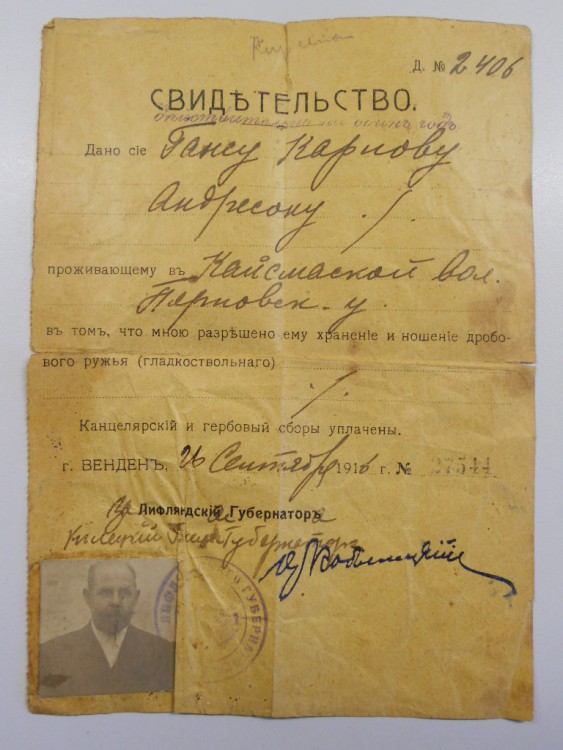 Д. № 2406
СВИДѢТЕЛЬСТВО.
годъ
Дано сіе Гансу Карлову
Андресону ./.
проживающему въ Кайсмаской вол.
Перновск. у.
въ томъ, что мною разрѣшено ему храненіе и ношеніе дробо-
вого ружья (гладкоствольнаго)
./.
Канцелярскій и гербовый сборы уплачены.
г. ВЕНДЕНЪ, 26 Сентября 1916 г. № 27544
За Лифляндскій Губернаторъ а
Вице Губернаторъ